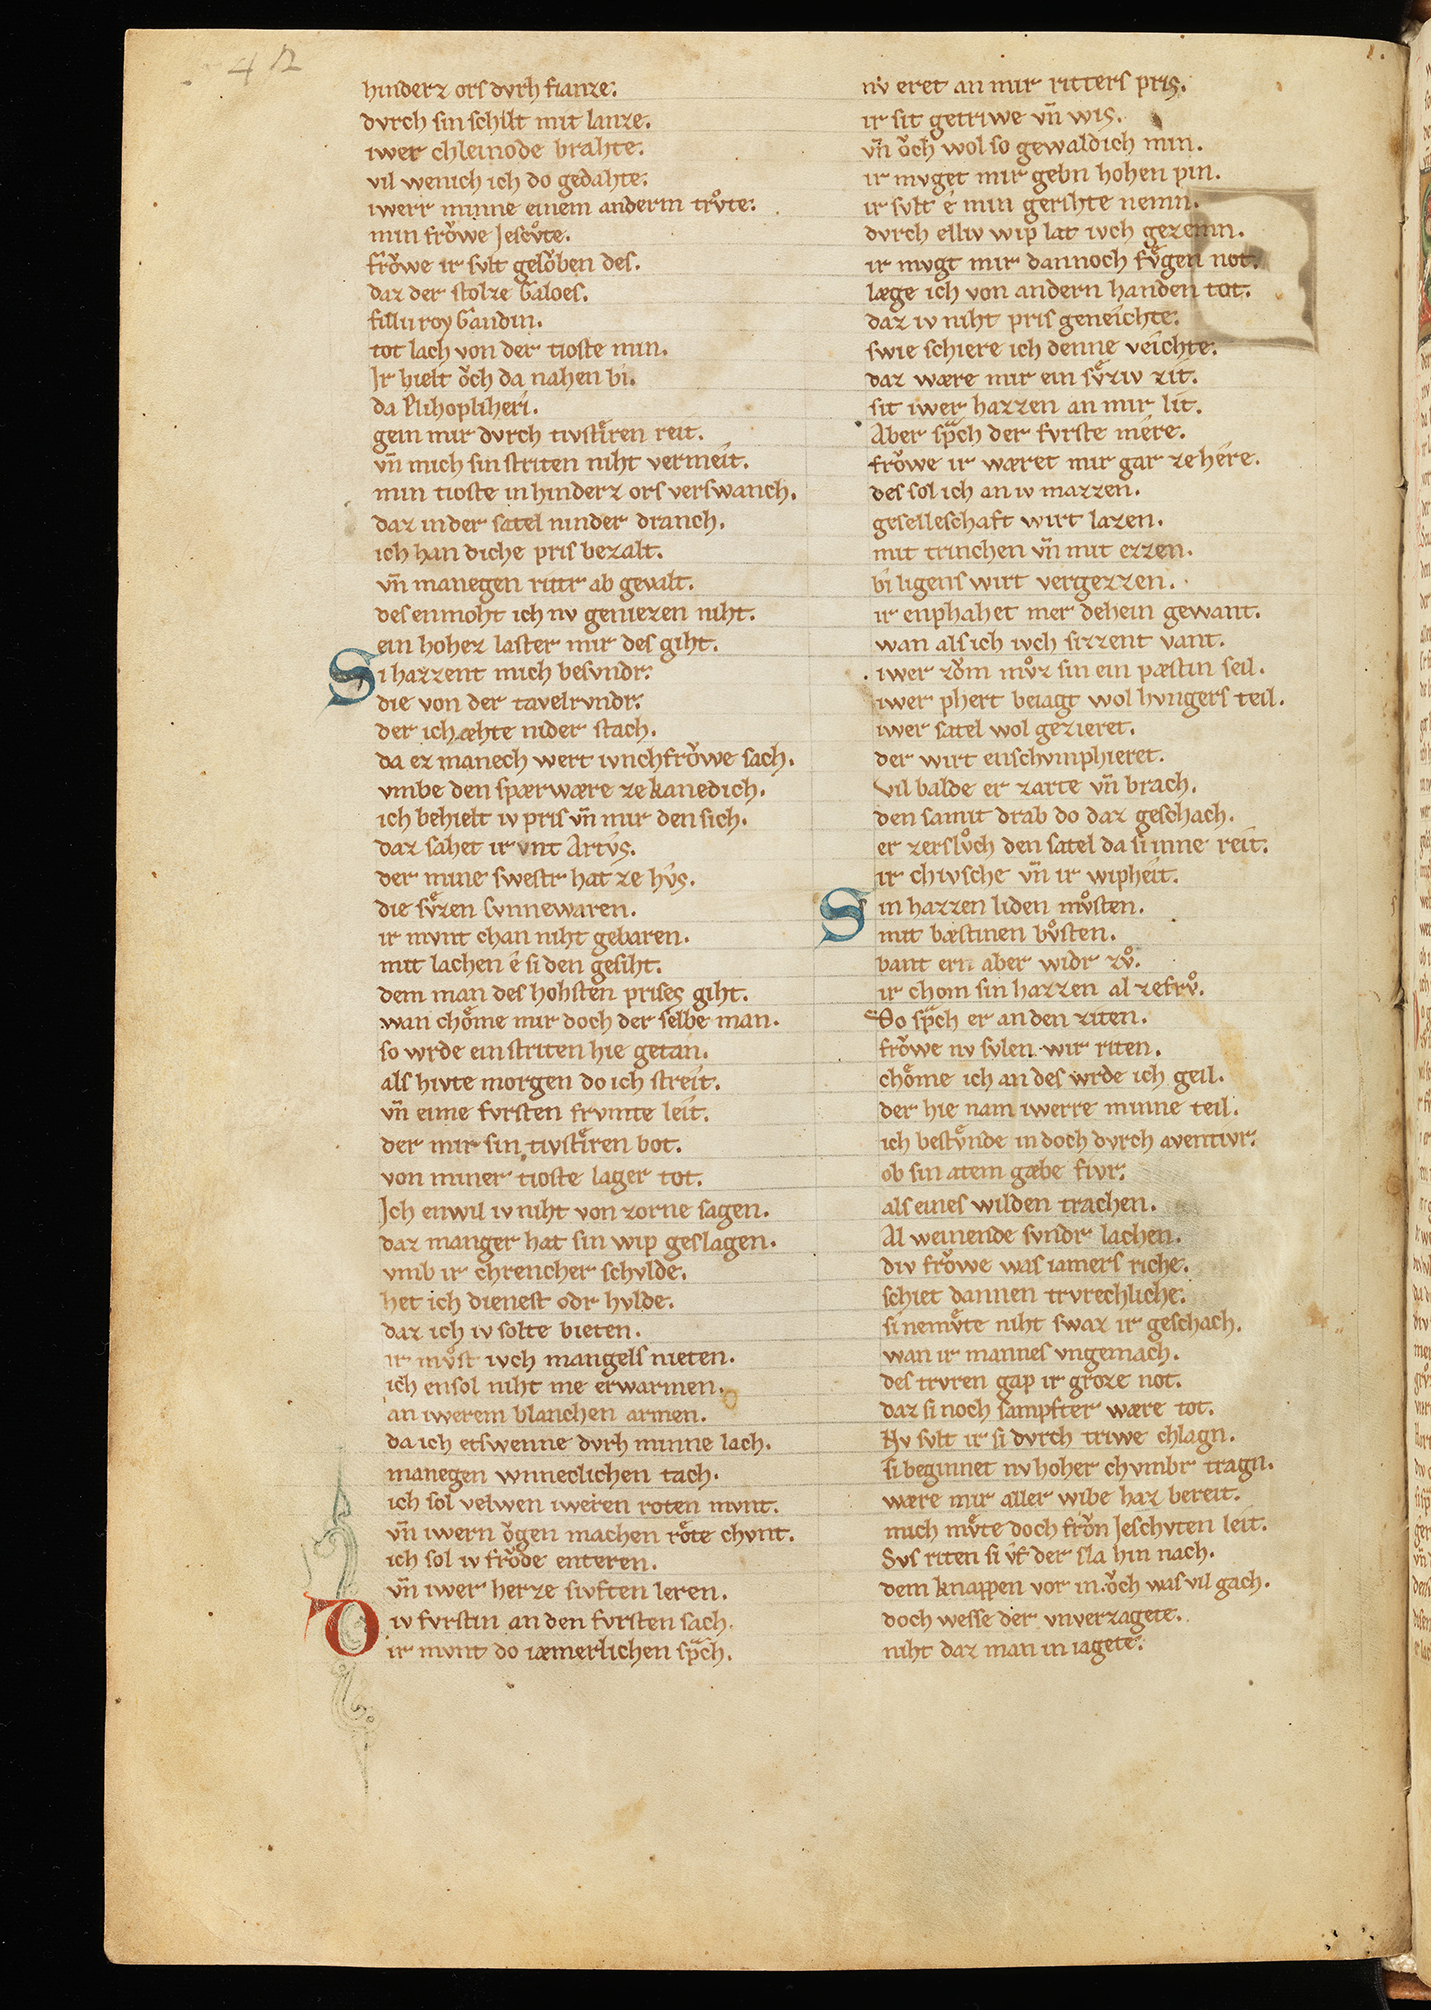 42
hinderz ors dvrh fianze.
dvrch sin schilt mit lanze.
iwer chleinode brahte.
vil wenich ich do gedahte.
iwerr minne einem anderm trv̊te.
min frŏwe Jescv̊te.
frŏwe ir svlt gelŏben des.
daz der stolze Galoes.
fillu roy Gandin.
tot lach von der tioste min.
Ir hielt ŏch da nahen bi.
da Plihopliheri.
gein mir dvrch tivstiren reit.
vn̄ mich sin striten niht vermeit.
min tioste in hinderz ors verswanch.
daz in der satel ninder dranch.
ich han diche pris bezalt.
vn̄ manegen ritt̾ ab gevalt.
des enmoht ich nv geniezen niht.
ein hohez laster mir des giht.
Si hazzent mich besvndr̾.
die von der tavelrvndr̾.
der ich æhte nider stach.
da ez manech wert ivnchfrŏwe sach.
vmbe den spærwære ze kanedich.
ich behielt iv pris vn̄ mir den sich.
daz sahet ir vnt Artvs.
der mine swestr̾ hat ze hvs.
die sv̊zen Cvnnewaren.
ir mvnt chan niht gebaren.
mit lachen e si den gesiht.
dem man des hohsten prises giht.
wan chŏme mir doch der selbe man.
so wrde ein striten hie getan.
als hivte morgen do ich streit.
vn̄ eime fvrsten frvmte leit.
der mir sin tivstiren bot.
von miner tioste lager tot.
Ich enwil iv niht von zorne sagen.
daz manger hat sin wip geslagen.
vmb ir chrencher schvlde.
het ich dienest odr̾ hvlde.
daz ich iv solte bieten.
ir mv̊st ivch mangels nieten.
ich ensol niht me erwarmen.
an iwerem blanchen armen.
da ich etswenne dvrh minne lach.
manegen wnneclichen tach.
ich sol velwen iweren roten mvnt.
vn̄ iwern ŏgen machen rŏte chvnt.
ich sol iv frŏde enteren.
vn̄ iwer herze sivften leren.
Div fvrstin an den fvrsten sach.
ir mvnt do iæmerlichen sp̾ch.
nv eret an mir ritters pris.
ir sit getriwe vn̄ wis.
vn̄ ŏch wol so gewaldich min.
ir mvget mir gebn hohen pin.
ir svlt e min gerihte nemn.
dvrch elliv wip lat ivch gezemn.
ir mvgt mir dannoch fv̊gen not.
læge ich von andern handen tot.
daz iv niht pris geneichte.
swie schiere ich denne veichte.
daz wære mir ein sv̊ziv zit.
sit iwer hazzen an mir lit.
Aber sp̾ch der fvrste mere.
frŏwe ir wæret mir gar ze here.
des sol ich an iv mazzen.
geselleschaft wirt lazen.
mit trinchen vn̄ mit ezzen.
bi ligens wirt vergezzen.
ir enphahet mer dehein gewant.
wan als ich ivch sizzent vant.
iwer zŏm mv̊z sin ein pæstin seil.
iwer phert beiagt wol hvngers teil.
iwer satel wol gezieret.
der wirt enschvmphieret.
vil balde er zarte vn̄ brach.
den samit drab do daz geschach.
er zerslv̊ch den satel da si inne reit.
ir chivsche vn̄ ir wipheit.
Sin hazzen liden mv̊sten.
mit bæstinen bv̊sten.
bant ern aber widr̾ zv̊.
ir chom sin hazzen al ze frv̊.
Do sp̾ch er an den ziten.
frŏwe nv svlen wir riten.
chŏme ich an des wrde ich geil.
der hie nam iwerre minne teil.
ich bestv̊nde in doch dvrch aventivr̾.
ob sin atem gæbe fivr̾.
als eines wilden trachen.
Al weinende svndr̾ lachen.
div frŏwe was iamers riche.
schiet dannen trvrechliche.
sinemv̊te niht swaz ir geschach.
wan ir mannes vngemach.
des trvren gap ir groze not.
daz si noch sampfter wære tot.
Nv svlt ir si dvrch triwe chlagn.
si beginnet nv hoher chvmbr̾ tragn.
wære mir aller wibe haz bereit.
mich mv̊te doch frŏn Jeschvten leit.
Svs riten si vf der sla hin nach.
dem knappen vor in ŏch was vil gach.
doch wesse der vnverzagete.
niht daz man in iagete.